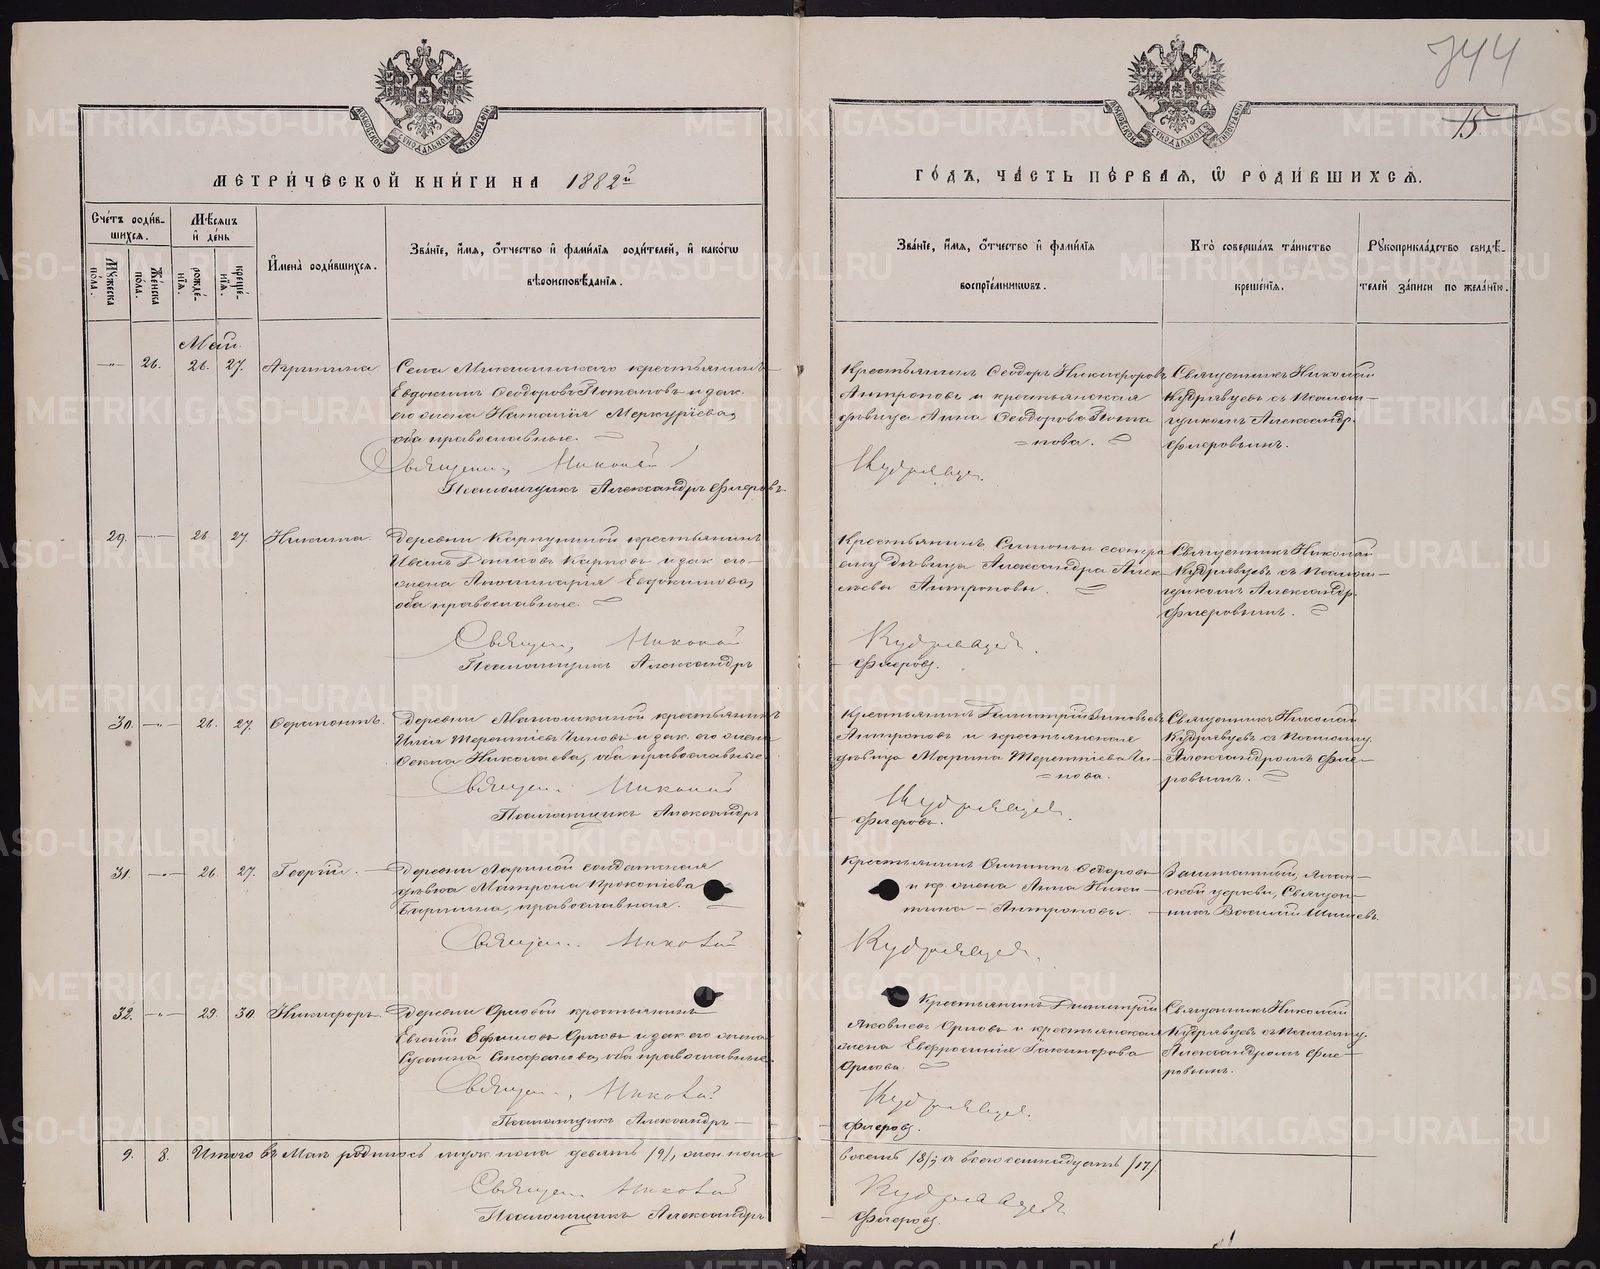 744
15
МЕТРИЧЕСКОЙ КНИГИ НА 1882й
ГОДЪ, ЧАСТЬ ПЕРВАЯ, Ѿ РОДИВШИХСЯ.
Счетъ родив-
шихся.
Мужеска пола.
Женска пола.
Мѣсяцъ
и день
рожде-
нія.
креще-
нія.
Имена родившихся.
Званіе, имя, отчество и фамилія родителей, и какогѡ
вѣроисповѣданія.
Званіе, имя, отчество и фамилія
воспріемниковъ.
Кто совершалъ таинство
крещенія.
Рукоприкладство свидѣ-
телей записи по желанію.
Май.
26. 26. 27. Агрипина
Села Микшинскаго крестьянинъ
Евдокимъ Ѳеодоровъ Потаповъ и зак.
его жена Наталія Меркурьева,
оба православные.
Священн. Николай
Псаломщикъ Александръ Флеровъ.
Крестьянинъ Ѳеодоръ Никифоровъ
Антроповъ и крестьянская
дѣвица Анна Ѳеодорова Пота
=пова.
Кудрявцев.
Священникъ Николай
Кудрявцевъ съ Псалом-
щикомъ Александр.
Флеровымъ.
29. 26. 27. Никита.
Деревни Карпушиной крестьянинъ
Иванъ Денисовъ Карповъ и зак. его
жена Апполинарія Евдокимова,
оба православные.
Священ. Николай
Псаломщикъ Александръ
Дѣвица Александра Алек-
сѣева Антропова.
Кудрявцев.
Флеров.
Священникъ Николай
Кудрявцевъ съ Псалом-
щикомъ Александр.
Флеровымъ.
30. 26. 27. Ѳерапонтъ.
Деревни крестьянинъ
Илія Терентіевъ и зак. его жена
Ѳекла Николаева, оба православные
Священ. Николай
Псаломщикъ Александръ
Крестьянинъ Димитрій Зиновьевъ
Антроповъ и крестьянская
дѣвица Марина Терентіева
=нова.
Кудрявцев.
Флеровъ.
Священникъ Николай
Кудрявцевъ съ Псаломщ.
Александромъ Фле-
ровымъ.
31. 26. 27. Георгій.
Деревни Лариной солдатская
дѣвка Матрона Прокопіева
православная.
Священ. Николай
Крестьянинъ
и кр. жена Анна Ники-
тина - Антроповы.
Кудрявцев.
Заштатный,
ской церкви, Священ-
никъ Василій Шишевъ.
32. 29. 30. Никифоръ.
Деревни Орловой крестьянинъ
Евгеній Ефимовъ Орловъ и зак. его жена
Сусанна Стефанова, оба православные.
Священ. Николай
Псаломщикъ Александръ
Крестьянинъ Димитрій
Яковлевъ Орловъ и крестьянская
жена Евфросинія
Орлова.
Кудрявцев.
Флеров.
Священникъ Николай
Кудрявцевъ съ Псаломщ.
Александромъ Фле-
ровымъ.
9. 8. Итого въ Маѣ родилось муж. пола девять /9/, жен. пола
восемь /8/; а всего семнадцать /17/
Священ. Николай
Псаломщикъ Александръ
Кудрявцев
Флеров.
METRIKI.GASO-URAL.RU